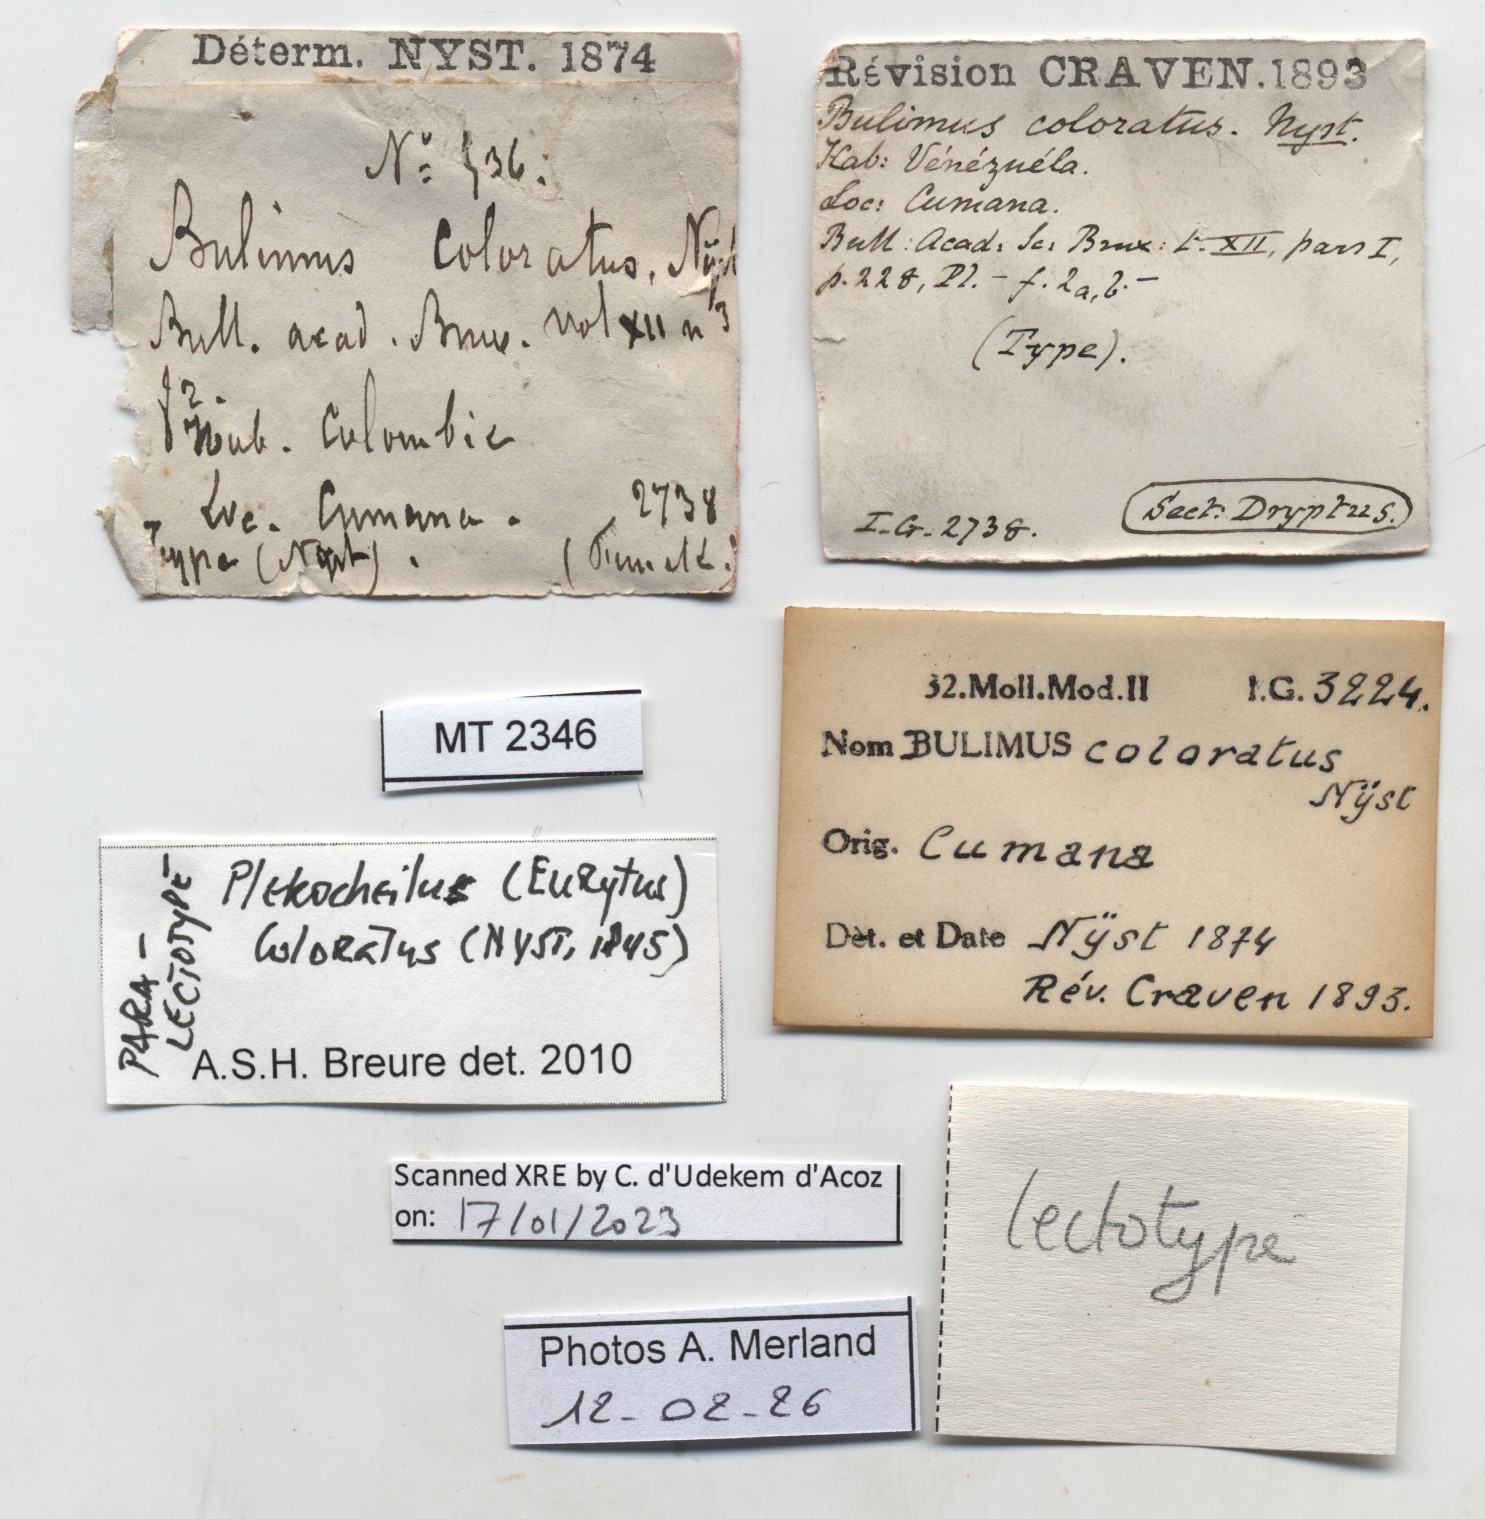 Déterm. NYST. 1874
Nº 436.
Bulimus coloratus, Nyst
Bull. acad. Brux. vol XII n 3
f 2.
Hab. Colombie
Loc. Cumana. 2738
Type (Nyst). (Funck.)
Révision CRAVEN.1893
Bulimus coloratus. Nyst.
Hab: Vénézuéla.
Loc: Cumana.
Bull: Acad: Sc: Brux: t. XII, pars I,
p. 228, Pl. - f. 2a, b. -
(Type).
I.G. 2738.
Sect: Dryptus.
MT 2346
32.Moll.Mod.II I.G. 3224.
Nom BULIMUS coloratus
Nÿst
Orig. Cumana
Dèt. et Date Nÿst 1874
Rév. Craven 1893.
PARA-
LECTOTYPE
Plekocheilus (Eurytus)
coloratus (NYST, 1845)
A.S.H. Breure det. 2010
Scanned XRE by C. d'Udekem d'Acoz
on: 17/01/2023
lectotype
Photos A. Merland
12-02-26